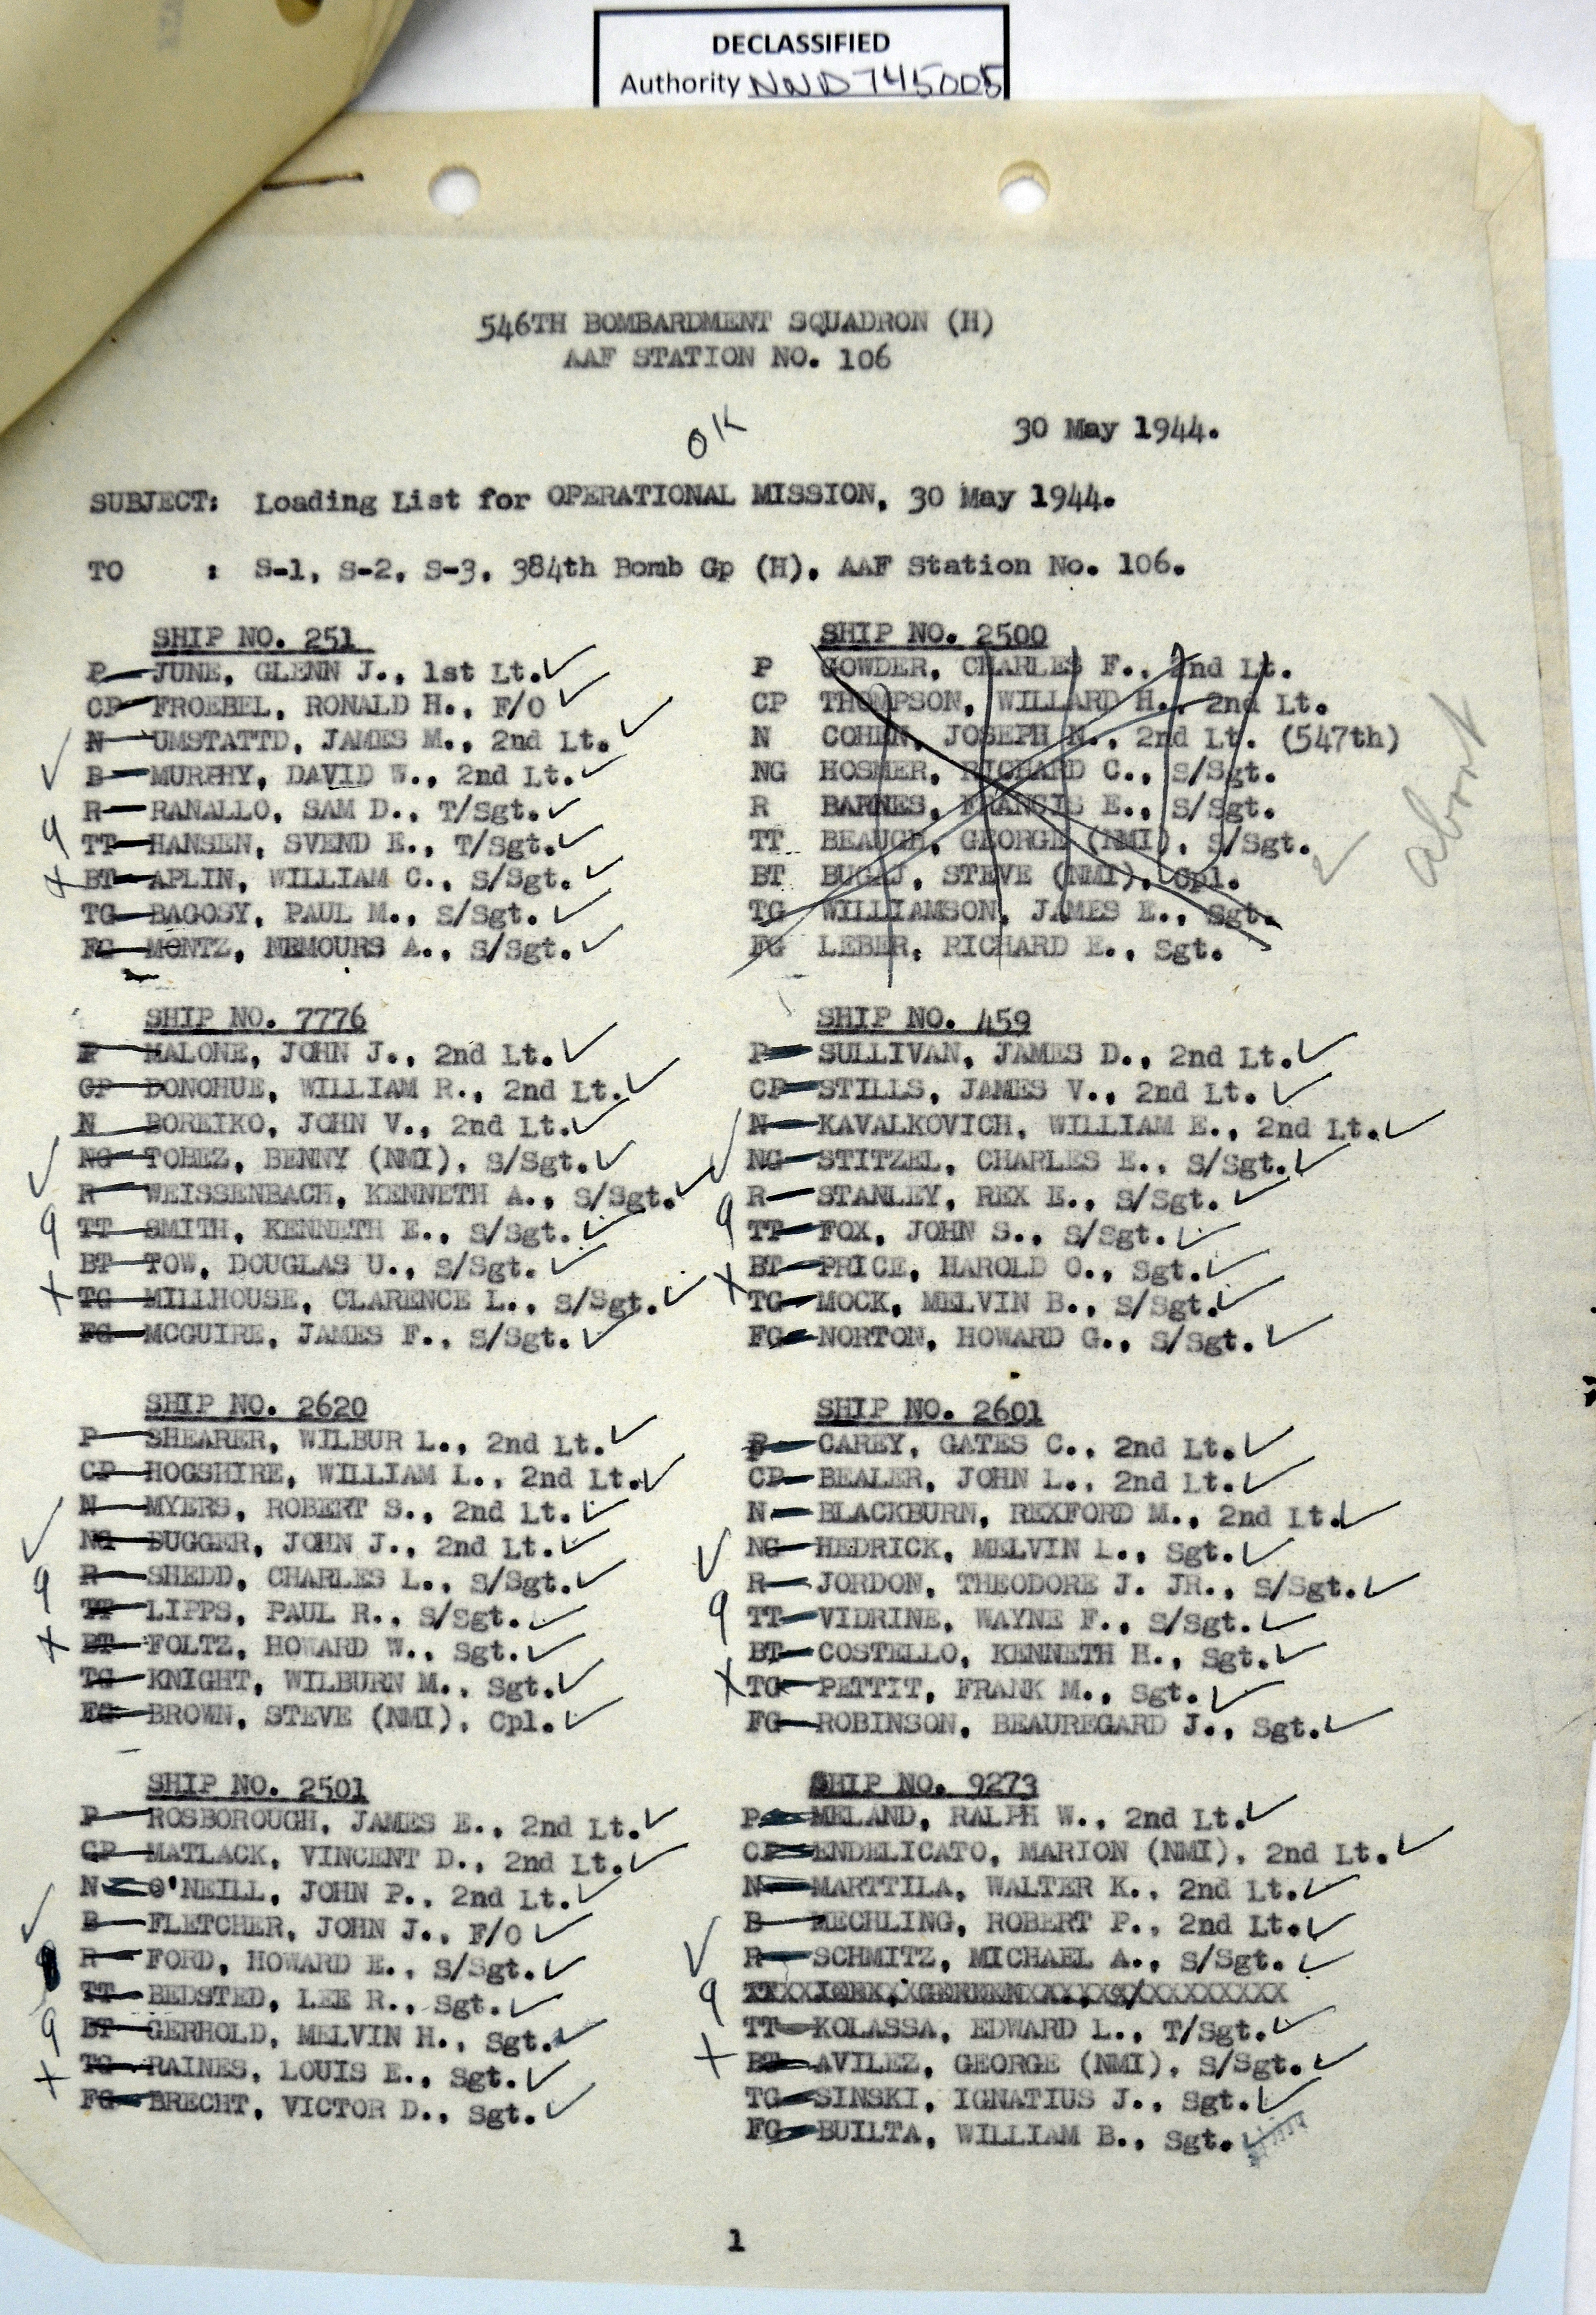 DECLASSIFIED
Authority NND 745005
546TH BOMBARDMENT SQUADRON (H)
AAF STATION NO. 106
OK
30 May 1944.
SUBJECT: Loading List for OPERATIONAL MISSION, 30 May 1944.
TO : S-1, S-2, S-3, 384th Bomb Gp (H), AAF Station No. 106.
SHIP NO. 251
P JUNE, GLENN J., 1st Lt. ✓
CP FROEBEL, RONALD H., F/O ✓
N UMSTATTD, JAMES M., 2nd Lt. ✓
✓ B MURPHY, DAVID W., 2nd Lt. ✓
R RANALLO, SAM D., T/Sgt. ✓
9 TT HANSEN, SVEND E., T/Sgt. ✓
+ BT APLIN, WILLIAM C., S/Sgt. ✓
TG BAGOSY, PAUL M., S/Sgt. ✓
FG MONTZ, NEMOURS A., S/Sgt. ✓
SHIP NO. 2500
P GOWDER, CHARLES F., 2nd Lt.
CP THOMPSON, WILLARD H., 2nd Lt.
N COHEN, JOSEPH N., 2nd Lt. (547th)
NG HOSMER, RICHARD C., S/Sgt.
R BARNES, FRANCIS E., S/Sgt.
TT BEAUGH, GEORGE (NMI), S/Sgt.
BT BUGAJ, STEVE (NMI), Cpl.
TG WILLIAMSON, JAMES E., Sgt.
FG LEBER, RICHARD E., Sgt.
✓ abort
SHIP NO. 7776
P MALONE, JOHN J., 2nd Lt. ✓
CP DONOHUE, WILLIAM R., 2nd Lt. ✓
N BOREIKO, JOHN V., 2nd Lt. ✓
✓ NG TOBEZ, BENNY (NMI), S/Sgt. ✓
R WEISSENBACH, KENNETH A., S/Sgt. ✓
9 TT SMITH, KENNETH E., S/Sgt. ✓
BT TOW, DOUGLAS U., S/Sgt. ✓
+ TG MILLHOUSE, CLARENCE L., S/Sgt. ✓
FG MCGUIRE, JAMES F., S/Sgt. ✓
SHIP NO. 459
P SULLIVAN, JAMES D., 2nd Lt. ✓
CP STILLS, JAMES V., 2nd Lt. ✓
N KAVALKOVICH, WILLIAM E., 2nd Lt. ✓
✓ NG STITZEL, CHARLES E., S/Sgt. ✓
9 R STANLEY, REX E., S/Sgt. ✓
TT FOX, JOHN S., S/Sgt. ✓
+ BT PRICE, HAROLD O., Sgt. ✓
TG MOCK, MELVIN B., S/Sgt. ✓
FG NORTON, HOWARD G., S/Sgt. ✓
SHIP NO. 2620
P SHEARER, WILBUR L., 2nd Lt. ✓
CP HOGSHIRE, WILLIAM L., 2nd Lt. ✓
N MYERS, ROBERT S., 2nd Lt. ✓
✓ NG DUGGER, JOHN J., 2nd Lt. ✓
9 R SHEDD, CHARLES L., S/Sgt. ✓
TT LIPPS, PAUL R., S/Sgt. ✓
+ BT FOLTZ, HOWARD W., Sgt. ✓
TG KNIGHT, WILBURN M., Sgt. ✓
FG BROWN, STEVE (NMI), Cpl. ✓
SHIP NO. 2601
P CAREY, GATES C., 2nd Lt. ✓
CP BEALER, JOHN L., 2nd Lt. ✓
N BLACKBURN, REXFORD M., 2nd Lt. ✓
✓ NG HEDRICK, MELVIN L., Sgt. ✓
R JORDON, THEODORE J. JR., S/Sgt. ✓
9 TT VIDRINE, WAYNE F., S/Sgt. ✓
BT COSTELLO, KENNETH H., Sgt. ✓
+ TG PETTIT, FRANK M., Sgt. ✓
FG ROBINSON, BEAUREGARD J., Sgt. ✓
SHIP NO. 2501
P ROSBOROUGH, JAMES E., 2nd Lt. ✓
CP MATLACK, VINCENT D., 2nd Lt. ✓
N O'NEILL, JOHN P., 2nd Lt. ✓
✓ B FLETCHER, JOHN J., F/O ✓
R FORD, HOWARD E., S/Sgt. ✓
TT BEDSTED, LEE R., Sgt. ✓
9 BT GERHOLD, MELVIN H., Sgt. ✓
+ TG RAINES, LOUIS E., Sgt. ✓
FG BRECHT, VICTOR D., Sgt. ✓
SHIP NO. 9273
P MELAND, RALPH W., 2nd Lt. ✓
CP ENDELICATO, MARION (NMI), 2nd Lt. ✓
N MARTTILA, WALTER K., 2nd Lt. ✓
B MECHLING, ROBERT P., 2nd Lt. ✓
✓ R SCHMITZ, MICHAEL A., S/Sgt. ✓
9
TT KOLASSA, EDWARD L., T/Sgt. ✓
+ BT AVILEZ, GEORGE (NMI), S/Sgt. ✓
TG SINSKI, IGNATIUS J., Sgt. ✓
FG BUILTA, WILLIAM B., Sgt. ✓
1